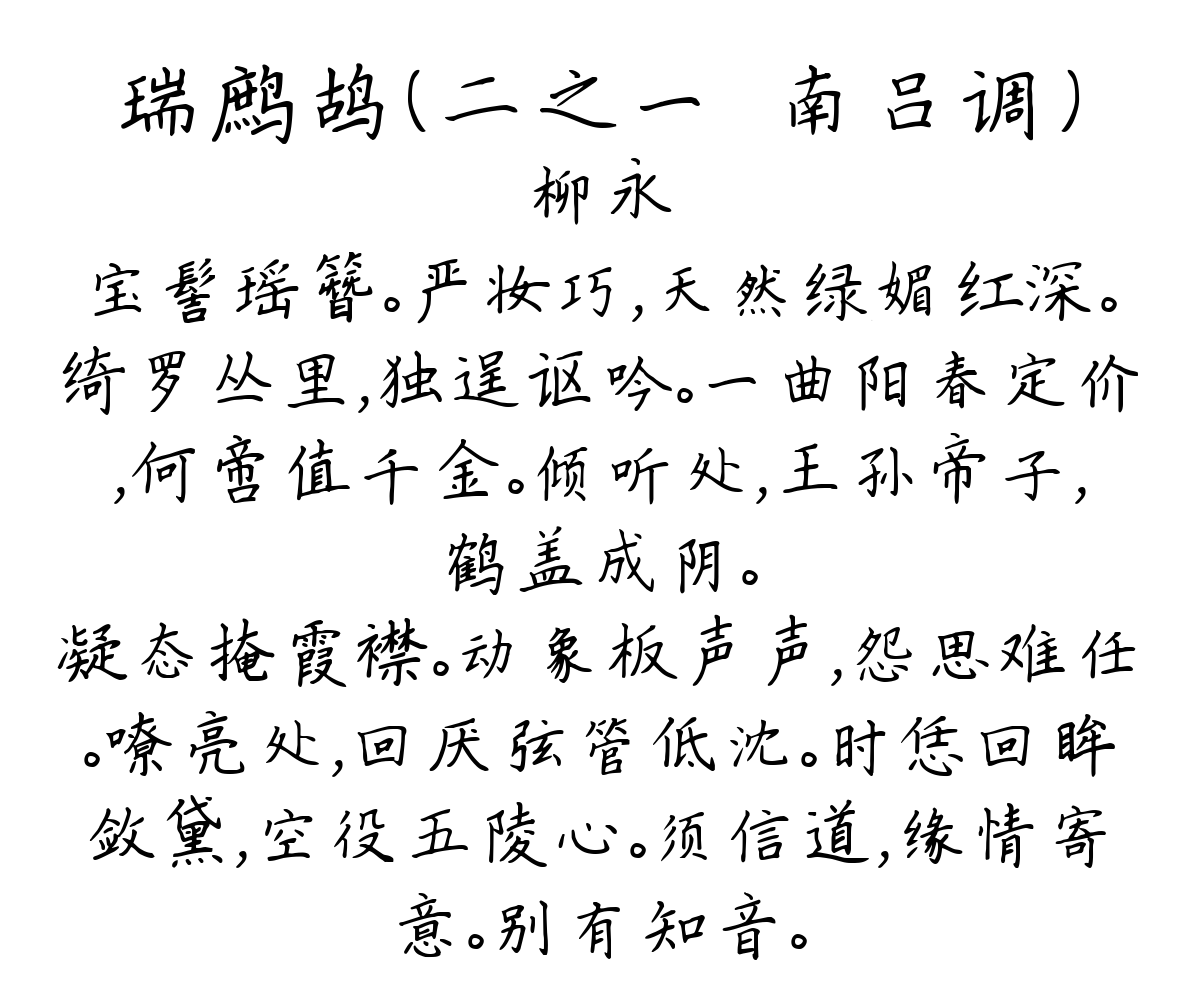 瑞鹧鸪(二之一 南吕调)
柳永
宝髻瑶簪。严妆巧,天然绿媚红深。
绮罗丛里,独逞讴吟。一曲阳春定价
,何啻值千金。倾听处,王孙帝子,
鹤盖成阴。
凝态掩霞襟。动象板声声,怨思难任
。嘹亮处,回厌弦管低沈。时恁回眸
敛黛,空役五陵心。须信道,缘情寄
意。别有知音。